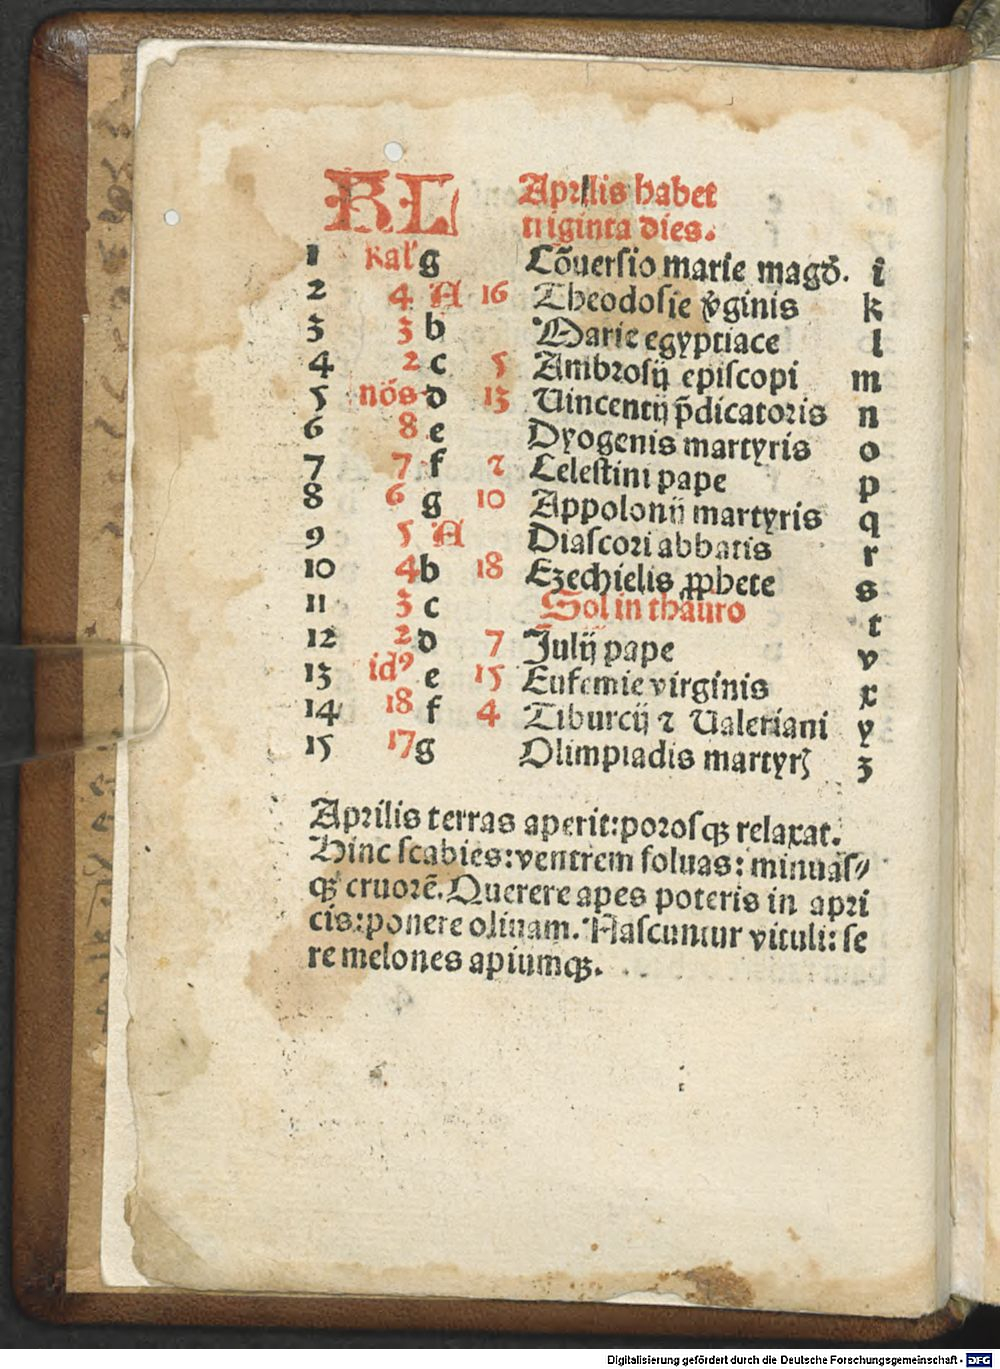 KL Aprilis habet
triginta dies.
1 kal' g Cōuersio marie magď. i
2 4 A 16 Theodosie v̄ginis k
3 3 b Marie egyptiace l
4 2 c 5 Ambrosij episcopi m
5 nōs d 13 Uincentij p̄dicatoris n
6 8 e Dyogenis martyris o
7 7 f 2 Celestini pape p
8 6 g 10 Appolonij martyris q
9 5 A Diascori abbatis r
10 4 b 18 Ezechielis ꝓphete s
11 3 c Sol in thauro t
12 2 d 7 Julij pape v
13 idꝰ e 15 Eufemie virginis x
14 18 f 4 Tiburcij ⁊ Ualeriani y
15 17 g Olimpiadis martyrꝭ z
Aprilis terras aperit: porosqꝫ relaxat.
Hinc scabies: ventrem soluas: minuas⸗
qꝫ cruorē. Querere apes poteris in apri
cis: ponere oliuam. Nascuntur vituli: se
re melones apiumqꝫ.
Digitalisierung gefördert durch die Deutsche Forschungsgemeinschaft - DFG